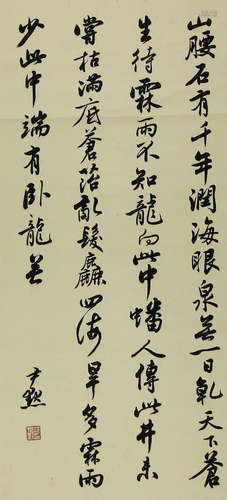 山腰石有千年潤海眼泉無一日乾天下蒼
生待霖雨不知龍向此中蟠人傳此井未
嘗枯滿底蒼苔亂髮麤四海旱多霖雨
少此中端有卧龍無
尹默